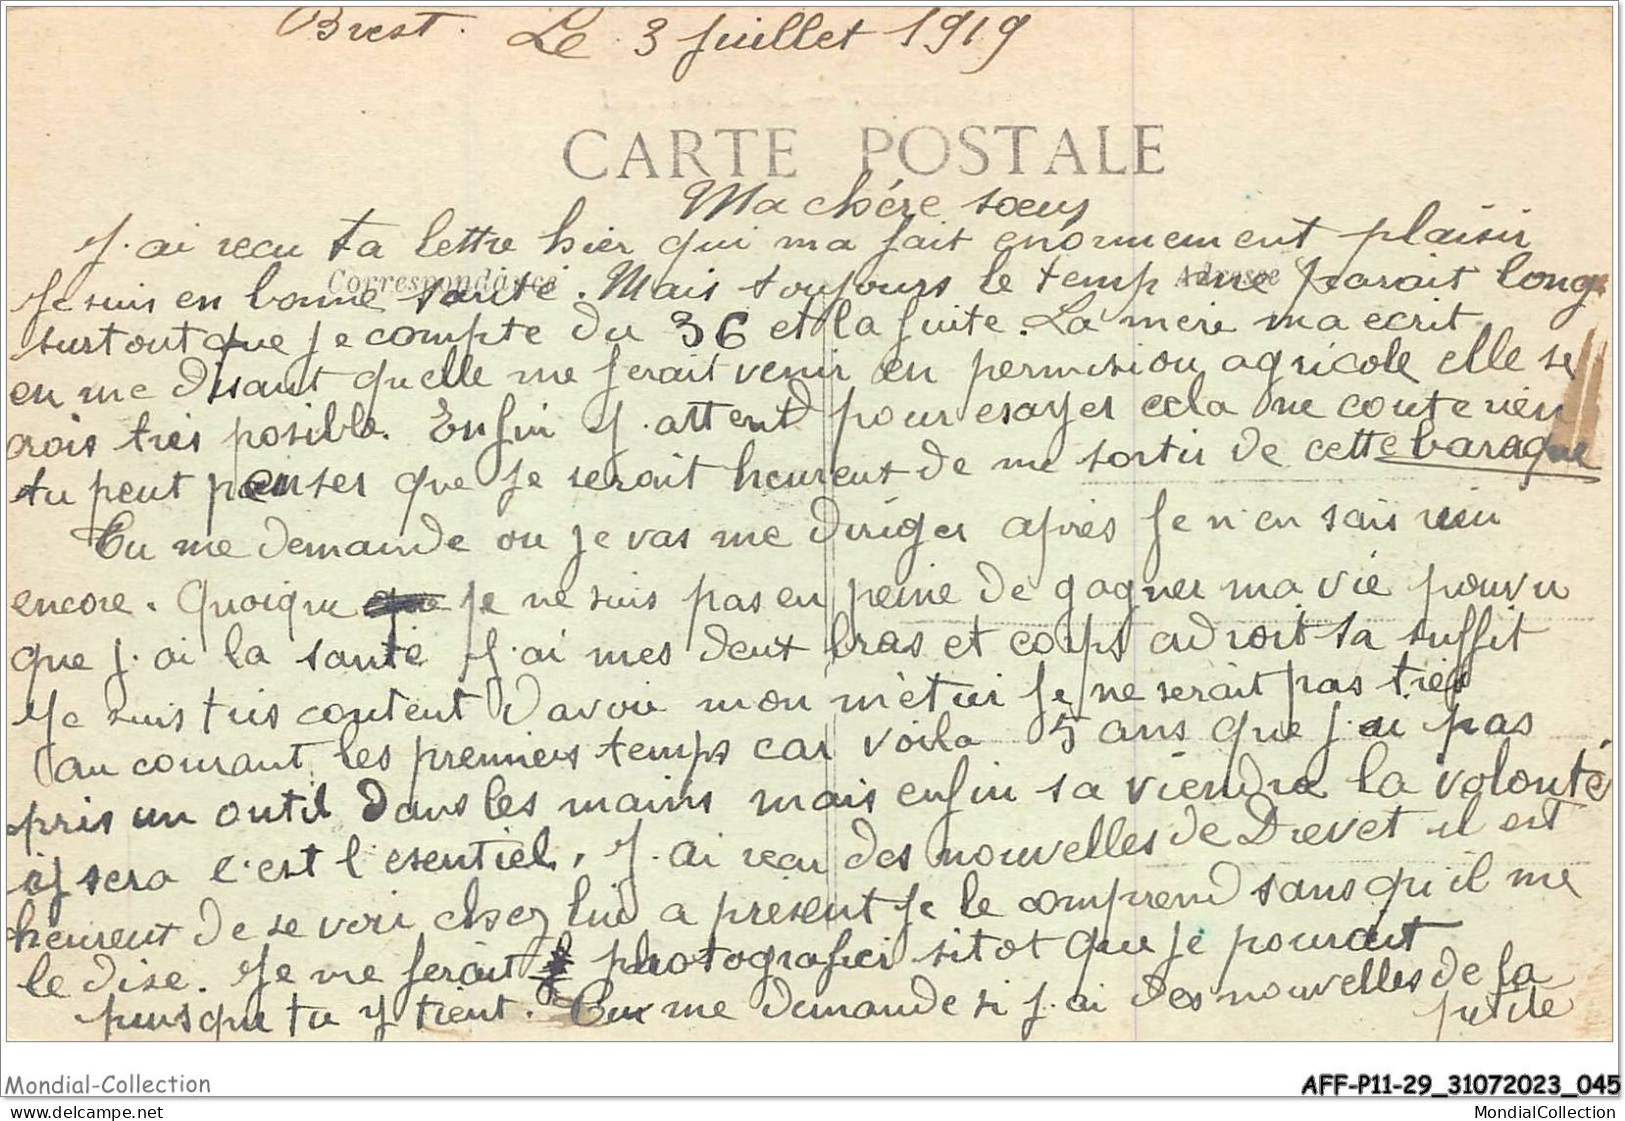 Brest. Le 3 Juillet 1919
CARTE POSTALE
Ma chére soeur
J.ai recu ta lettre hier qui ma fait enormement plaisir
Correspondance
Adresse
Je suis en bonne santé. Mais toujours le temp me parait long
surtout que je compte du 36 et la fuite. La mere ma ecrit
en me disant quelle me ferait venir en permision agricole elle se
crois tres posible. Enfin J.attend pour esayer cela ne coute rien
tu peut penser que je serait heureux de me sortir de cette baraque
Tu me demande ou je vas me diriger apres Je n'en sais rien
encore. Quoique je ne suis pas en peine de gagner ma vie pourvu
que j.ai la santé J.ai mes deux bras et corps adroit sa suffit
Je suis tres content d avoir mon métier Je ne serait pas tres
au courant les premiers temps car voila 5 ans que j.ai pas
pris un outil dans les mains mais enfin sa viendra la volonté
y sera c'est l'esentiel. J.ai recu des nouvelles de Drevet il est
heureux de se voir chez lui a present Je le comprend sans qu'il me
le dise. Je me ferait photografier sitot que je pourait
puisque tu y tient. Tu me demande si j.ai des nouvelles de la
petite
Mondial-Collection
AFF-P11-29_31072023_045
www.delcampe.net
MondialCollection